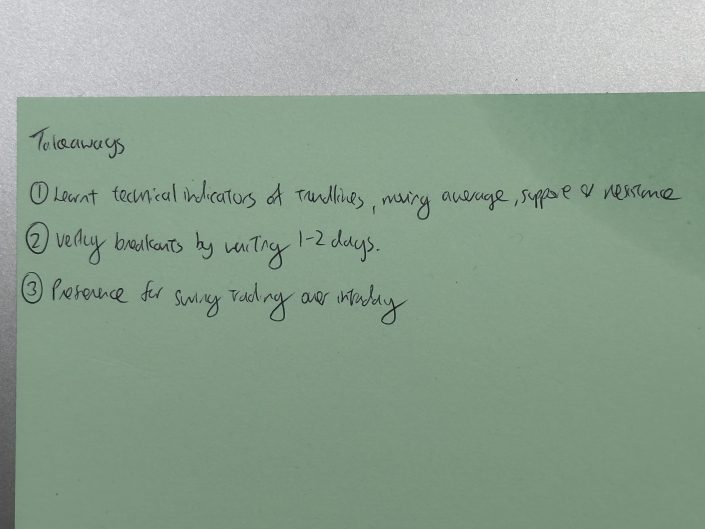 Takeaways
① Learnt technical indicators of Trendlines, moving average, support & resistance
② Verify breakouts by waiting 1-2 days.
③ Preference for swing trading over intraday